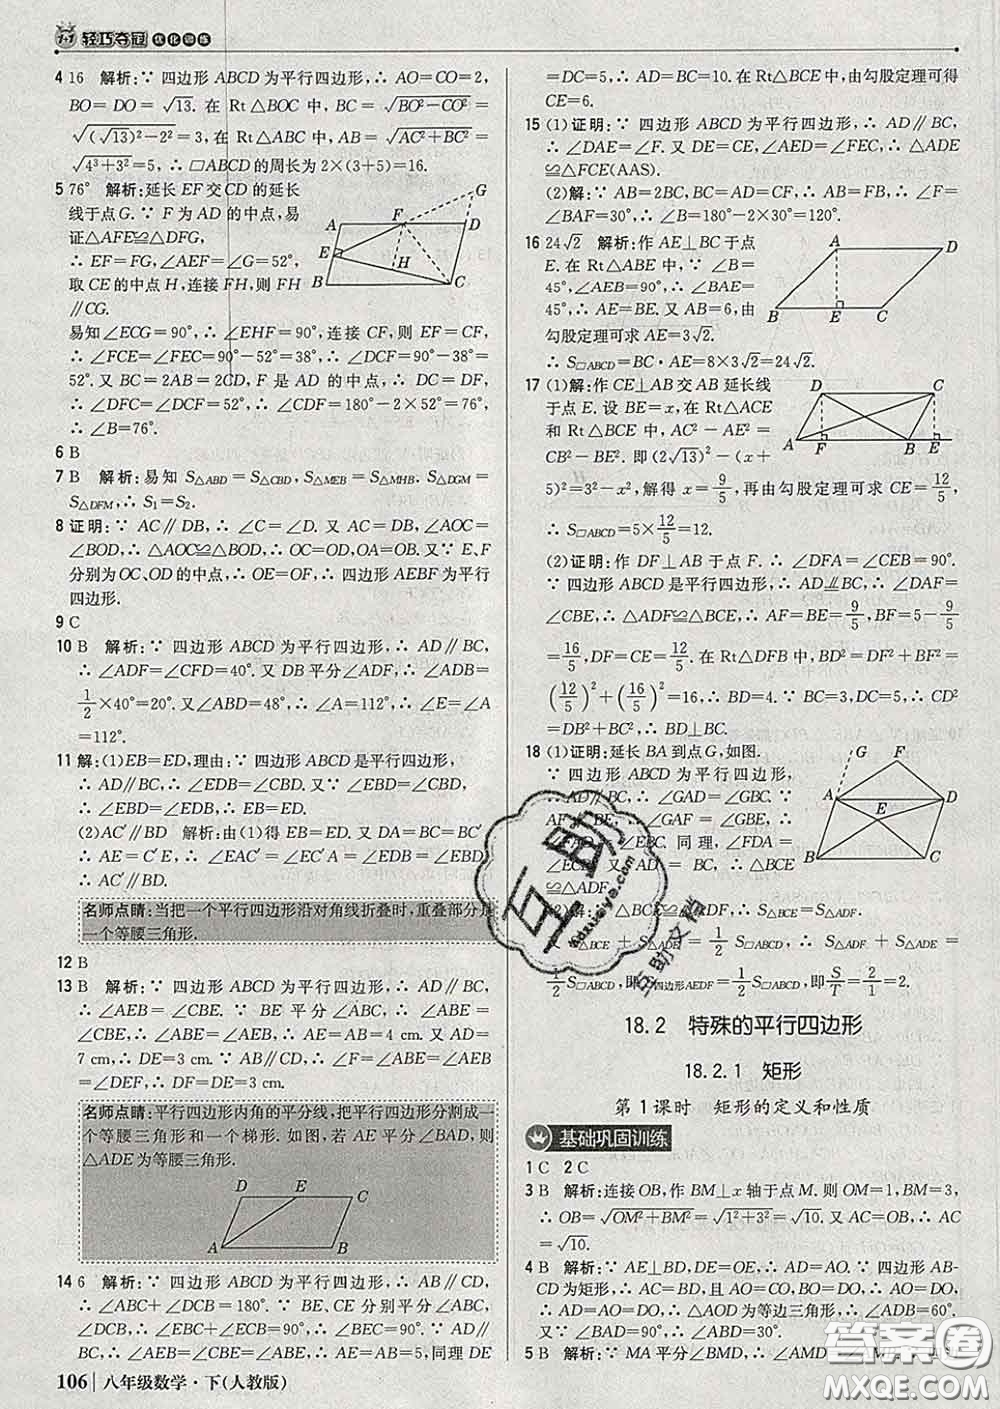 1+1 轻巧夺冠 优化训练
4 16 解析:∵ 四边形 ABCD 为平行四边形,∴ AO=CO=2,
BO=DO=√13. 在 Rt△BOC 中,BC=√(BO²-CO²)
=√((√13)²-2²)=3,在 Rt△ABC 中,AB=√(AC²+BC²)=
√(4²+3²)=5,∴ □ABCD的周长为 2×(3+5)=16.
5 76° 解析:延长 EF 交 CD 的延长
线于点G.∵ F 为 AD 的中点,易
证△AFE≌△DFG,
∴ EF=FG,∠AEF=∠G=52°,
取 CE 的中点 H,连接 FH,则 FH
∥CG.
易知∠ECG=90°,∴ ∠EHF=90°,连接 CF,则 EF=CF,
∴ ∠FCE=∠FEC=90°-52°=38°,∴ ∠DCF=90°-38°=
52°.又∵ BC=2AB=2CD,F 是 AD 的中点,∴ DC=DF,
∴ ∠DFC=∠DCF=52°,∴ ∠CDF=180°-2×52°=76°,
∴ ∠B=76°.
6 B
7 B 解析:易知 S△ABD=S△CBD,S△MEB=S△MHB,S△DGM=
S△DFM,∴ S₁=S₂.
8 证明:∵ AC∥DB,∴ ∠C=∠D.又 AC=DB,∠AOC=
∠BOD,∴ △AOC≌△BOD,∴ OC=OD,OA=OB.又∵ E、F
分别为OC、OD 的中点,∴ OE=OF,∴ 四边形 AEBF 为平行
四边形.
9 C
10 B 解析:∵ 四边形 ABCD 为平行四边形,∴ AD∥BC,
∴ ∠ADF=∠CFD=40°.又 DB 平分∠ADF,∴ ∠ADB=
1/2×40°=20°.又∠ABD=48°,∴ ∠A=112°,∴ ∠E=∠A
=112°.
11 解:(1)EB=ED,理由:∵ 四边形 ABCD是平行四边形,
∴ AD∥BC,∴ ∠EDB=∠CBD.又∵ ∠EBD=∠CBD,
∴ ∠EBD=∠EDB,∴ EB=ED.
(2)AC′∥BD 解析:由(1)得 EB=ED.又 DA=BC=BC′
∴ AE=C′E,∴ ∠EAC′=∠EC′A=∠EDB=∠EBD,
∴ AC′∥BD.
名师点睛:当把一个平行四边形沿对角线折叠时,重叠部分是
一个等腰三角形.
12 B
13 B 解析:∵ 四边形 ABCD 为平行四边形,∴ AD∥BC,
∴ ∠AEB=∠CBE.∵ BE 平分∠ABC,∴ ∠ABE=
∠CBE,∴ ∠ABE=∠AEB,∴ AE=AB=4 cm.又 AD=
7 cm,∴ DE=3 cm.∵ DC∥AB,∴ ∠F=∠ABE=∠AEB
=∠DEF,∴ DF=DE=3 cm.
名师点睛:平行四边形内角的平分线,把平行四边形分割成一
个等腰三角形和一个梯形.如图,若 AE 平分∠BAD,则
△ADE 为等腰三角形.
14 6 解析:∵ 四边形 ABCD 为平行四边形,∴ AB∥CD,
∴ ∠ABC+∠DCB=180°.∵ BE、CE 分别平分∠ABC、
∠DCB,∴ ∠EBC+∠ECB=90°,∴ ∠BEC=90°.∵ AD∥
BC,∴ ∠AEB=∠EBC=∠ABE,∴ AB=AE=5,同理 DE
106 八年级数学·下(人教版)
=DC=5,∴ AD=BC=10.在 Rt△BCE 中,由勾股定理可得
CE=6.
15 (1)证明:∵ 四边形 ABCD为平行四边形,∴ AD∥BC,
∴ ∠DAE=∠F.又 DE=CE,∠AED=∠FEC,∴ △ADE
≌△FCE(AAS).
(2)解:∵ AB=2BC,BC=CF,∴ AB=FB,∴ ∠F=
∠BAF=30°,∴ ∠B=180°-2×30°=120°.
16 24√2 解析:作 AE⊥BC 于点
E.在 Rt△ABE 中,∵ ∠B=
45°,∠AEB=90°,∴ ∠BAE=
45°,∴ AE=BE.又 AB=6,由
勾股定理可求 AE=3√2.
∴ S□ABCD=BC·AE=8×3√2=24√2.
17 (1)解:作 CE⊥AB 交 AB 延长线
于点 E.设 BE=x,在 Rt△ACE
和 Rt△BCE 中,AC²-AE²=
CB²-BE².即(2√13)²-(x+
5)²=3²-x²,解得 x=9/5,再由勾股定理可求 CE=12/5,
∴ S□ABCD=5×12/5=12.
(2)证明:作 DF⊥AB 于点 F.∴ ∠DFA=∠CEB=90°.
∵ 四边形 ABCD 是平行四边形,∴ AD∥BC,∴ ∠DAF=
∠CBE,∴ △ADF≌△BCE,∴ AF=BE=9/5,BF=5-9/5
=16/5,DF=CE=12/5.在 Rt△DFB 中,由勾股定理可得 BD²=
(12/5)²+(16/5)²=16,∴ BD=4.∵ BC=3,DC=5,∴ CD²
=DB²+BC²,∴ BD⊥BC.
18 (1)证明:延长 BA 到点 G,如图.
∵ 四边形 ABCD 是平行四边形,
∴ AD∥BC,∴ ∠GAD=∠GBC.∵
AF∥BE,∴ ∠GAF=∠GBE,∴
∠FAD=∠EBC,同理,∠FDA=
∠ECB.又 AD=BC,∴ △BCE
≌△ADF.
(2)解:∵ △BCE≌△ADF,∴ S△BCE=S△ADF.
∵ S△BCE+S△ADE=1/2 S□ABCD,∴ S△ADF+S△ADE=
1/2 S□ABCD,即S四边形AEDF=1/2 S□ABCD,即S/T=2/1=2.
18.2 特殊的平行四边形
18.2.1 矩形
第 1 课时 矩形的定义和性质
基础巩固训练
1 C 2 C
3 B 解析:连接 OB,作 BM⊥x 轴于点 M.则 OM=1,BM=3,
∴ OB=√(OM²+BM²)=√(1²+3²)=√10.又∵ AC=OB,∴ AC=
√10.
4 B 解析:∵ AE⊥BD,DE=OE,∴ AD=AO.∵ 四边形 AB-
CD 为矩形,∴ AC=BD,∴ AO=CO,BO=DO,∴ AO=DO,
∴ AO=AD=DO,∴ △AOD为等边三角形,∴ ∠ADB=60°.
又∵ ∠BAD=90°,∴ ∠ABD=30°.
5 B 解析:∵ MA 平分∠BMD,∴
互助
kuzuoye.com
互助文档
答案圈
MXQE.COM